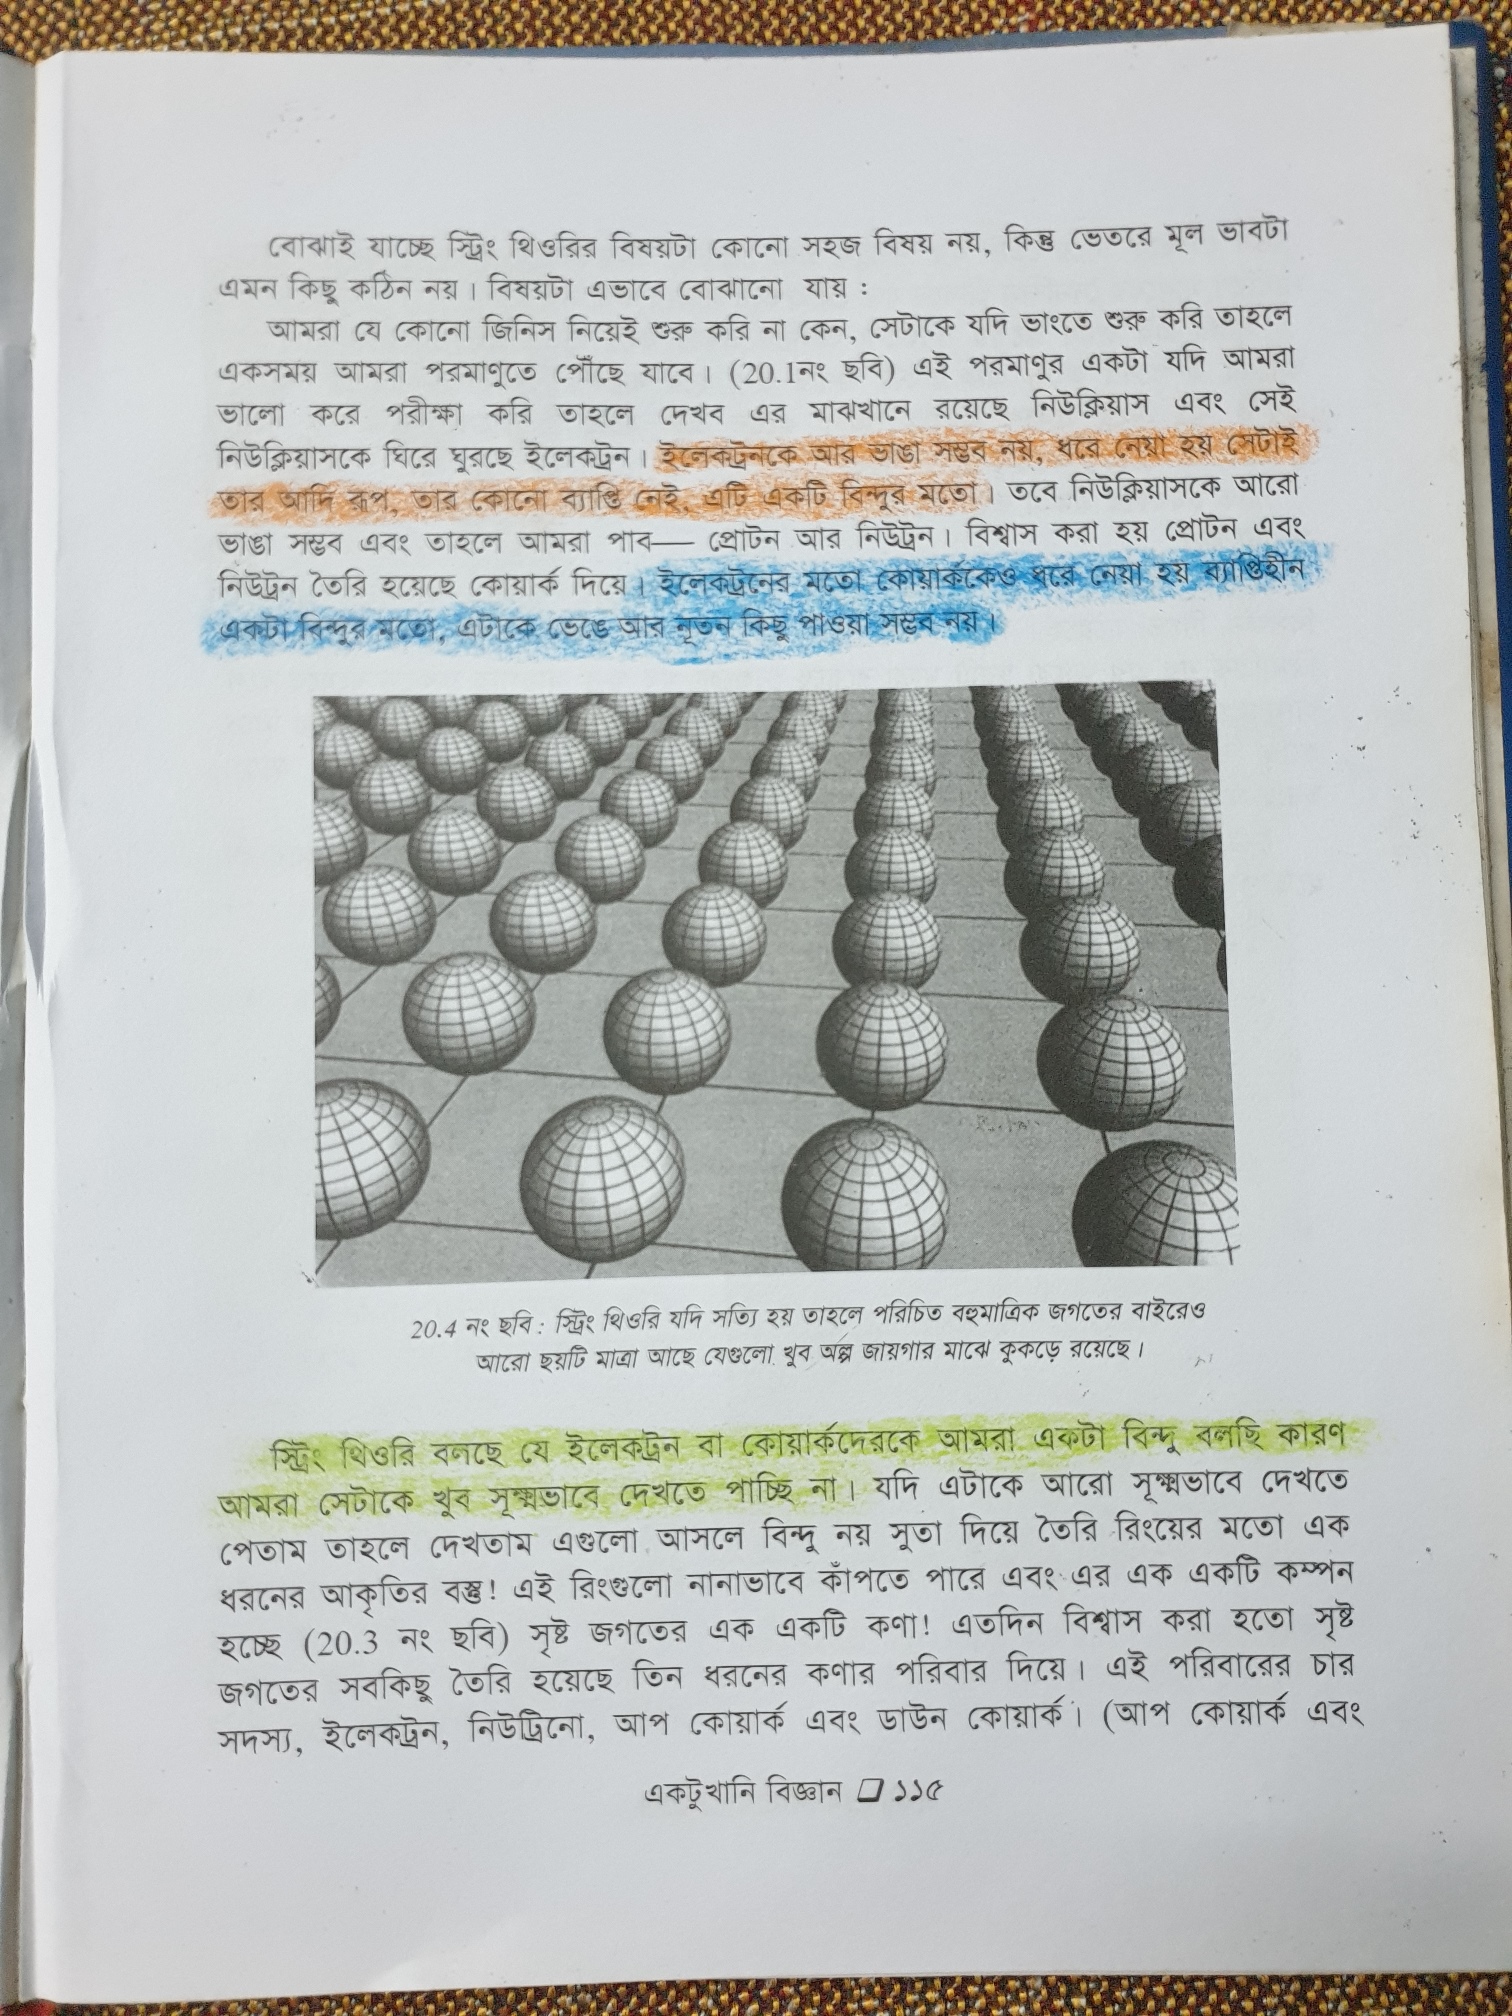 বোঝাই যাচ্ছে স্ট্রিং থিওরির বিষয়টা কোনো সহজ বিষয় নয়, কিন্তু ভেতরে মূল ভাবটা
এমন কিছু কঠিন নয়। বিষয়টা এভাবে বোঝানো যায় :
আমরা যে কোনো জিনিস নিয়েই শুরু করি না কেন, সেটাকে যদি ভাংতে শুরু করি তাহলে
একসময় আমরা পরমাণুতে পৌঁছে যাবে। (20.1নং ছবি) এই পরমাণুর একটা যদি আমরা
ভালো করে পরীক্ষা করি তাহলে দেখব এর মাঝখানে রয়েছে নিউক্লিয়াস এবং সেই
নিউক্লিয়াসকে ঘিরে ঘুরছে ইলেকট্রন। ইলেকট্রনকে আর ভাঙা সম্ভব নয়, ধরে নেয়া হয় সেটাই
তার আদি রূপ, তার কোনো ব্যাপ্তি নেই, এটি একটি বিন্দুর মতো। তবে নিউক্লিয়াসকে আরো
ভাঙা সম্ভব এবং তাহলে আমরা পাব— প্রোটন আর নিউট্রন। বিশ্বাস করা হয় প্রোটন এবং
নিউট্রন তৈরি হয়েছে কোয়ার্ক দিয়ে। ইলেকট্রনের মতো কোয়ার্ককেও ধরে নেয়া হয় ব্যাপ্তিহীন
একটা বিন্দুর মতো, এটাকে ভেঙে আর নূতন কিছু পাওয়া সম্ভব নয়।
20.4 নং ছবি : স্ট্রিং থিওরি যদি সত্যি হয় তাহলে পরিচিত বহুমাত্রিক জগতের বাইরেও
আরো ছয়টি মাত্রা আছে যেগুলো খুব অল্প জায়গার মাঝে কুকড়ে রয়েছে।
স্ট্রিং থিওরি বলছে যে ইলেকট্রন বা কোয়ার্কদেরকে আমরা একটা বিন্দু বলছি কারণ
আমরা সেটাকে খুব সূক্ষ্মভাবে দেখতে পাচ্ছি না। যদি এটাকে আরো সূক্ষ্মভাবে দেখতে
পেতাম তাহলে দেখতাম এগুলো আসলে বিন্দু নয় সুতা দিয়ে তৈরি রিংয়ের মতো এক
ধরনের আকৃতির বস্তু! এই রিংগুলো নানাভাবে কাঁপতে পারে এবং এর এক একটি কম্পন
হচ্ছে (20.3 নং ছবি) সৃষ্ট জগতের এক একটি কণা! এতদিন বিশ্বাস করা হতো সৃষ্ট
জগতের সবকিছু তৈরি হয়েছে তিন ধরনের কণার পরিবার দিয়ে। এই পরিবারের চার
সদস্য, ইলেকট্রন, নিউট্রিনো, আপ কোয়ার্ক এবং ডাউন কোয়ার্ক। (আপ কোয়ার্ক এবং
একটুখানি বিজ্ঞান ❑ ১১৫